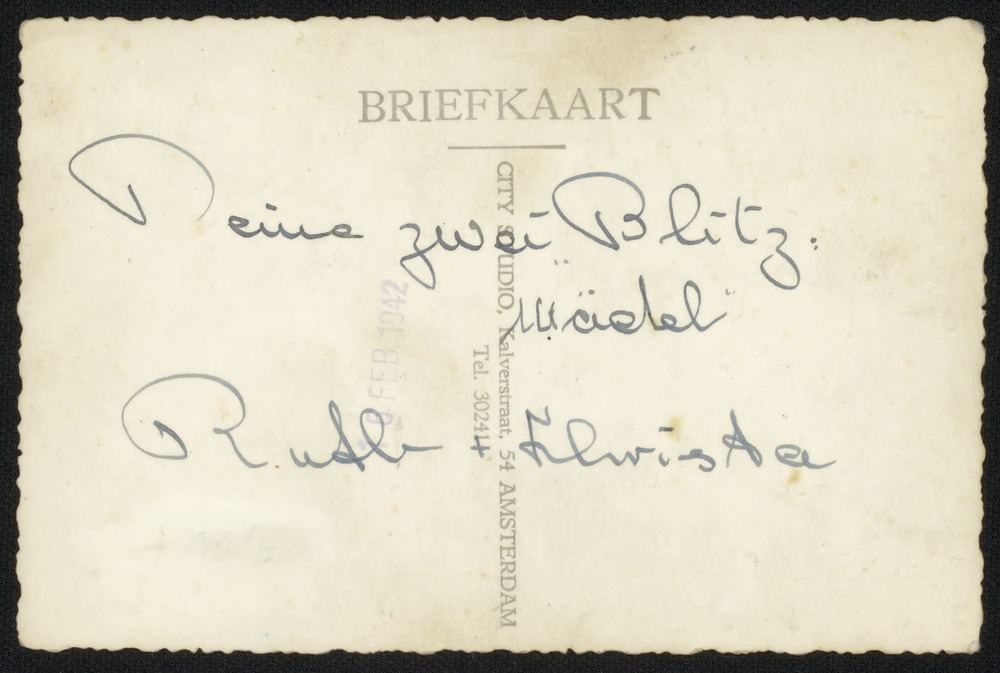 BRIEFKAART
Deine zwei Blitz.
"Mädel"
Ruth + Christa
FEB 1942
CITY STUDIO, Kalverstraat, 54 AMSTERDAM
Tel. 30241